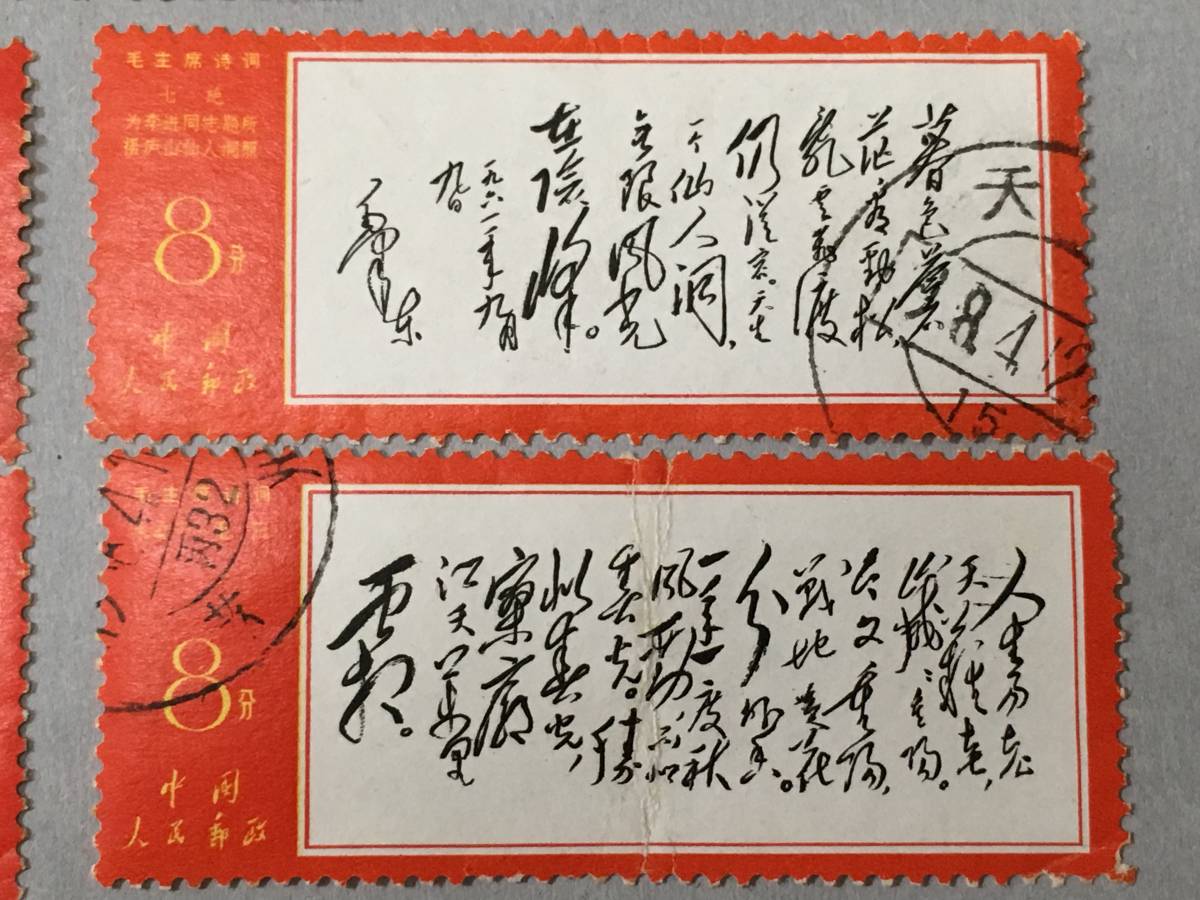 毛主席诗词
七绝
为李进同志题所
摄庐山仙人洞照
8分
中国
人民邮政
暮色苍
茫看劲松,
乱云飞渡
仍从容。天生
一个仙人洞,
无限风光
在险峰。
一九六一年九月
九日
毛泽东
天
15
毛主席诗词
8分
中国
人民邮政
人生易老
天难老,
岁岁重阳。
今又重阳,
战地黄花
分外香。
一年一度秋
风劲,不似
春光。胜
似春光,
寥廓
江天万里
霜。